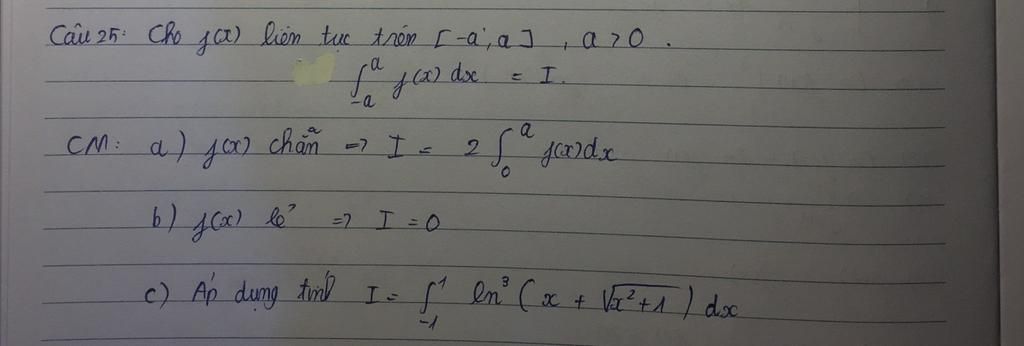 Câu 25: Cho f(x) liên tục trên [-a, a], a > 0.
∫_{-a}^{a} f(x) dx = I.
CM: a) f(x) chẵn => I = 2 ∫_{0}^{a} f(x) dx
b) f(x) lẻ => I = 0
c) Áp dụng tính I = ∫_{-1}^{1} ln³ (x + √(x² + 1)) dx